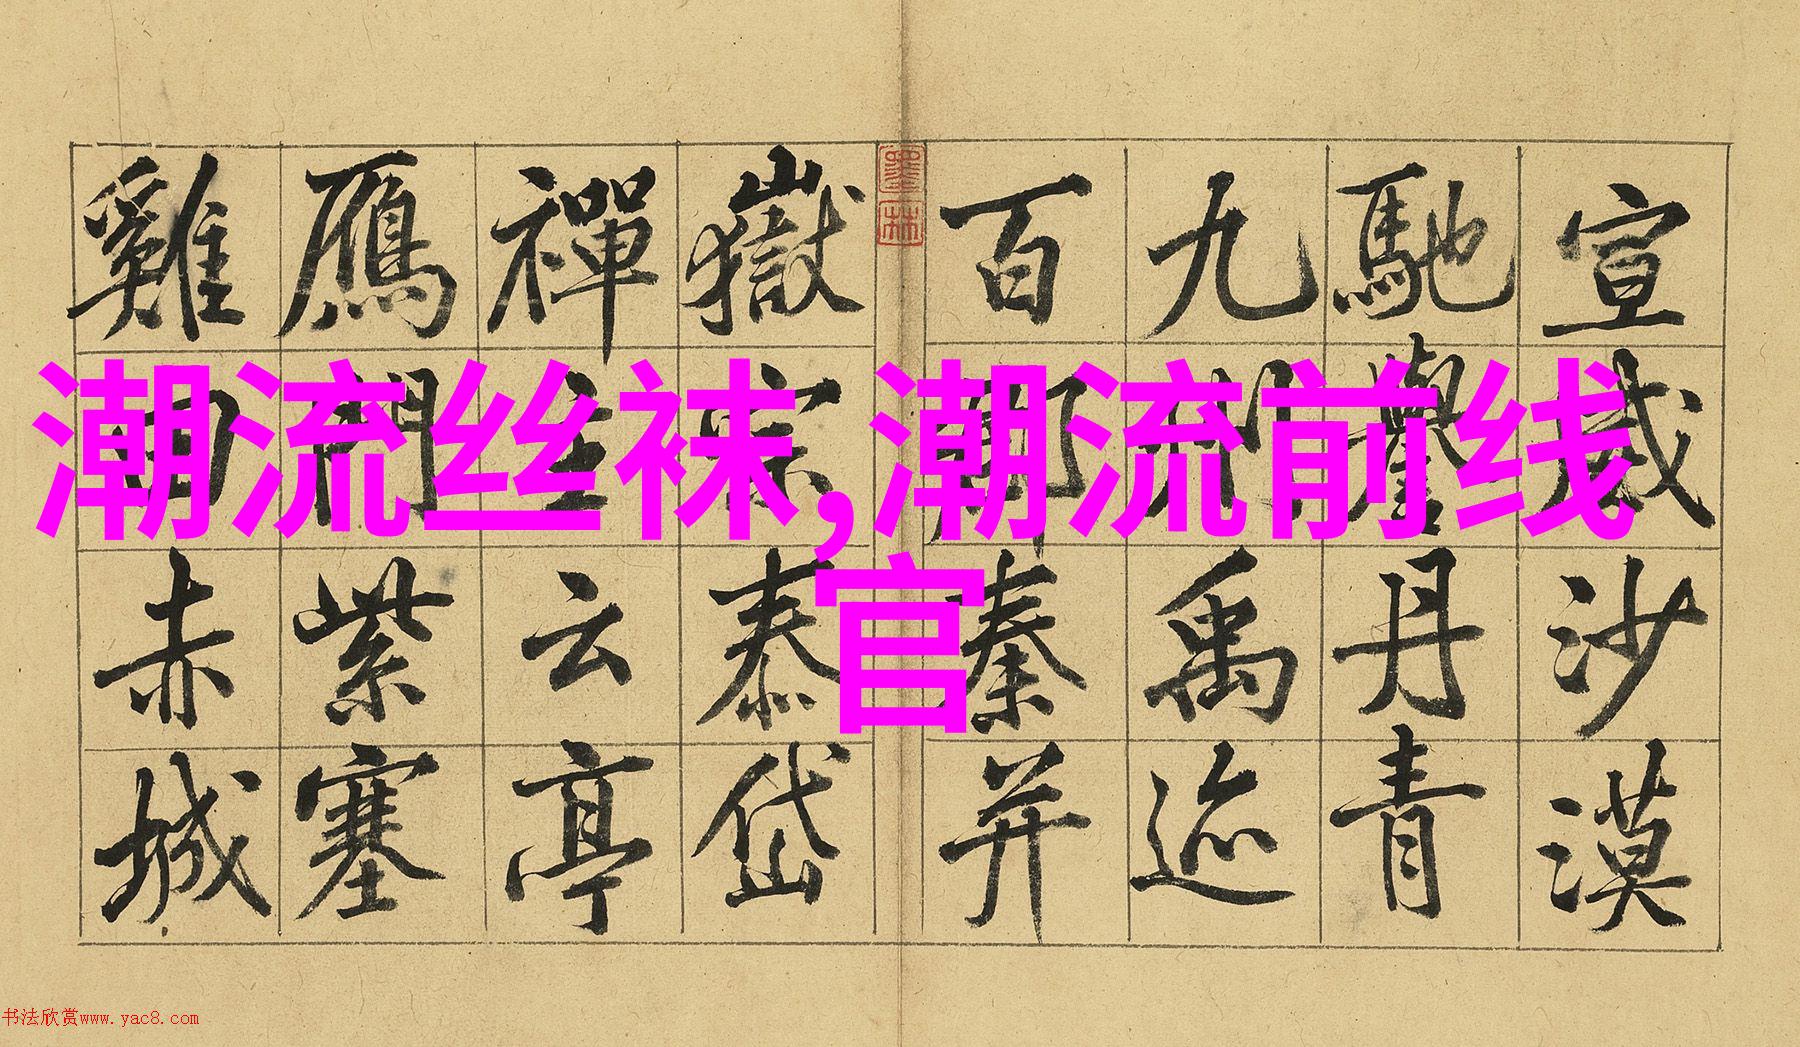 潮流丝袜,潮流前线
官
宣威沙漠
馳譽丹青
九州禹迹
百郡秦并
墨林
嶽宗泰岱
禪主云亭
鴈門紫塞
雞田赤城
书法欣赏www.yac8.com